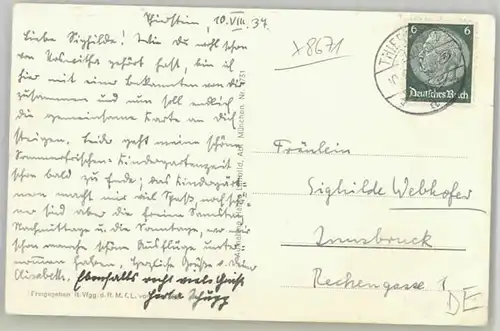 Thierstein, 10.VIII.34.
Liebe Sighilde! Wie du wohl schon
von gehört hast, bin ich
hier mit einer Bekannten von dir
zusammen und nun soll endlich
die gemeinsame Karte an dich
steigen. Leider geht meine schöne
Sommerfrischen-Kindergartenzeit
schon bald zu Ende; das Kindergärt-
nern macht mir viel Spaß, noch schö-
ner sind aber die freien Samstag-
Nachmittage u. die Sonntage, wo wir
schon manche schöne Ausflüge unter-
nommen haben. Herzliche Grüße v. Deiner
Elisabeth. Ebenfalls recht viele Grüße
Herta Schupp
Freigegeben d. Vfgg. d. R.M.f.L. v.
München. Nr. 4731
x8671
THIER
6 6
Deutsches Reich
Fräulein
Sighilde Webhofer
Innsbruck
Rechengasse 1
DE